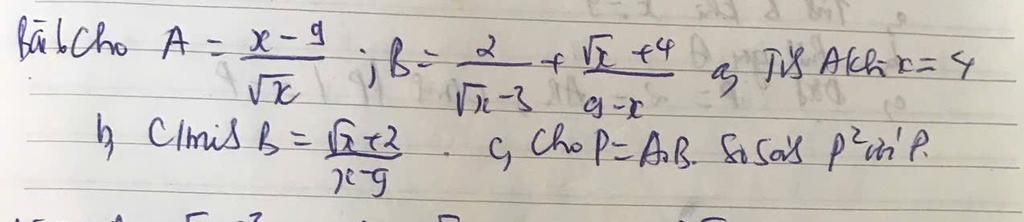 Bài 6 Cho A = (x - 9)/√x ; B = 2/(√x - 3) + (√x + 4)/(9 - x) a, Tính A khi x = 4
b, C/minh B = (√x + 2)/(x - 9) . c, Cho P = A.B. So sánh P² với P.